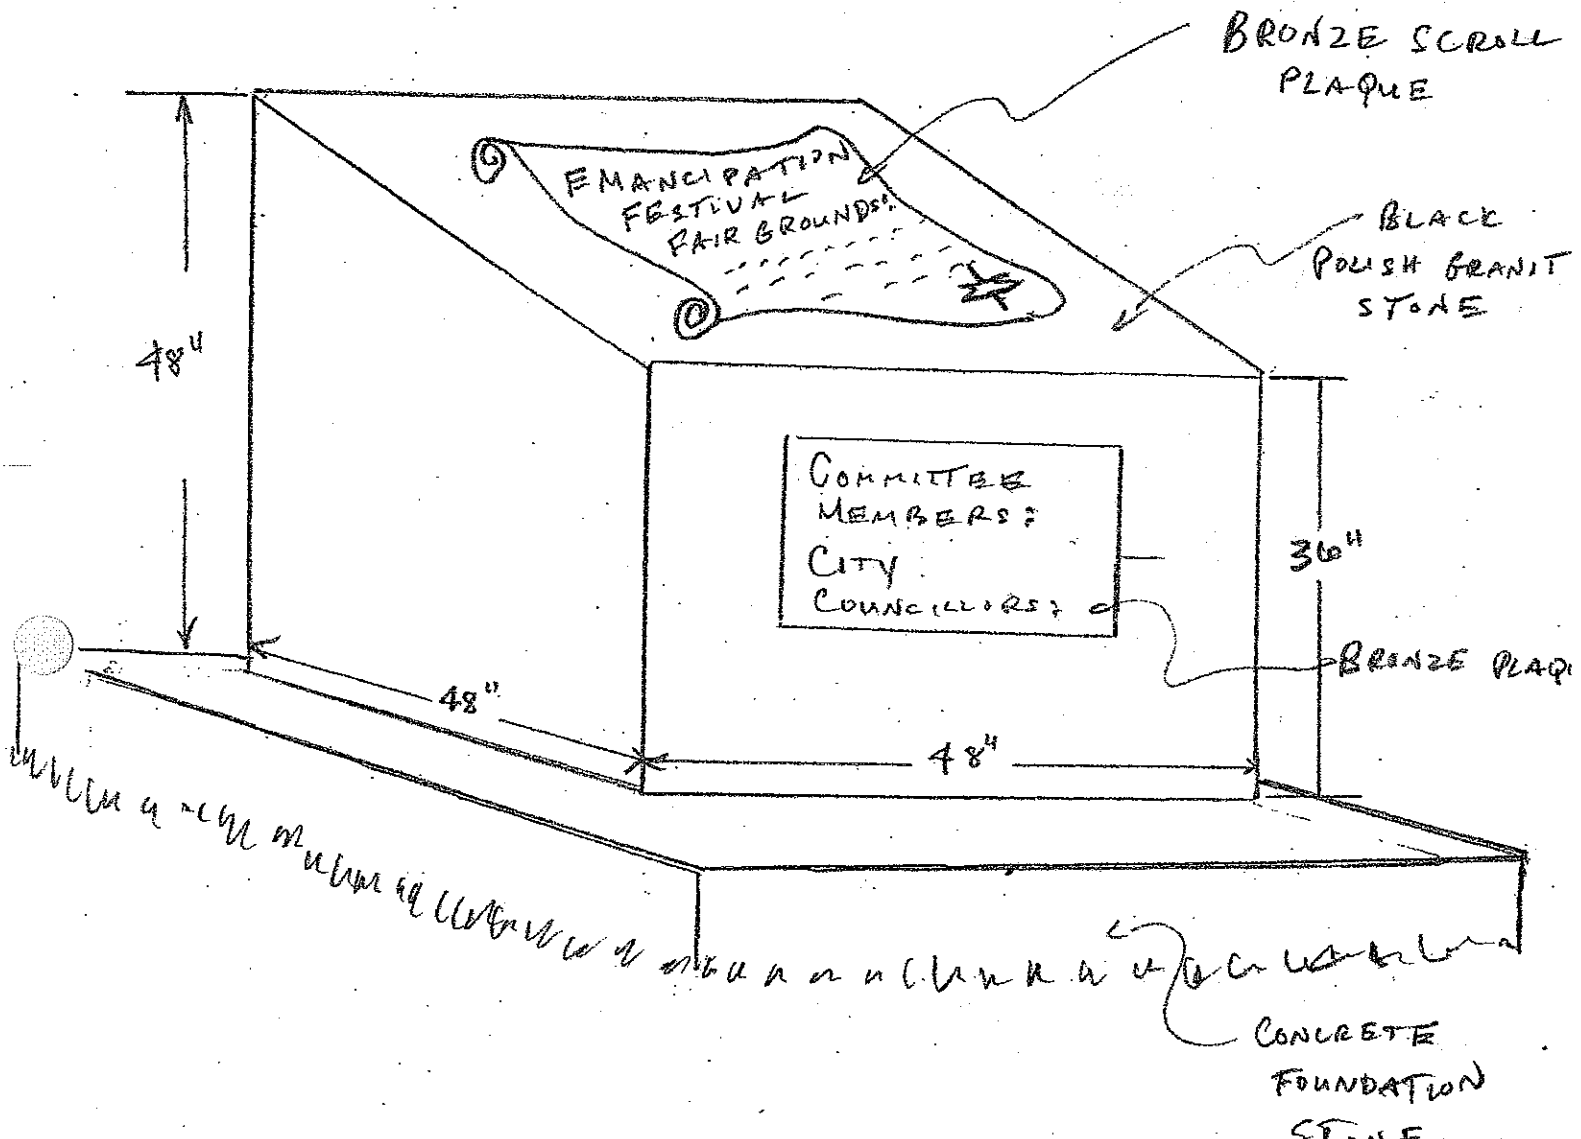 BRONZE SCROLL
PLAQUE
EMANCIPATION
FESTIVAL
FAIR GROUNDS:
BLACK
POLISH GRANIT
STONE
48"
COMMITTEE
MEMBERS:
CITY
COUNCILLORS:
36"
BRONZE PLAQU
48"
48"
CONCRETE
FOUNDATION
STONE